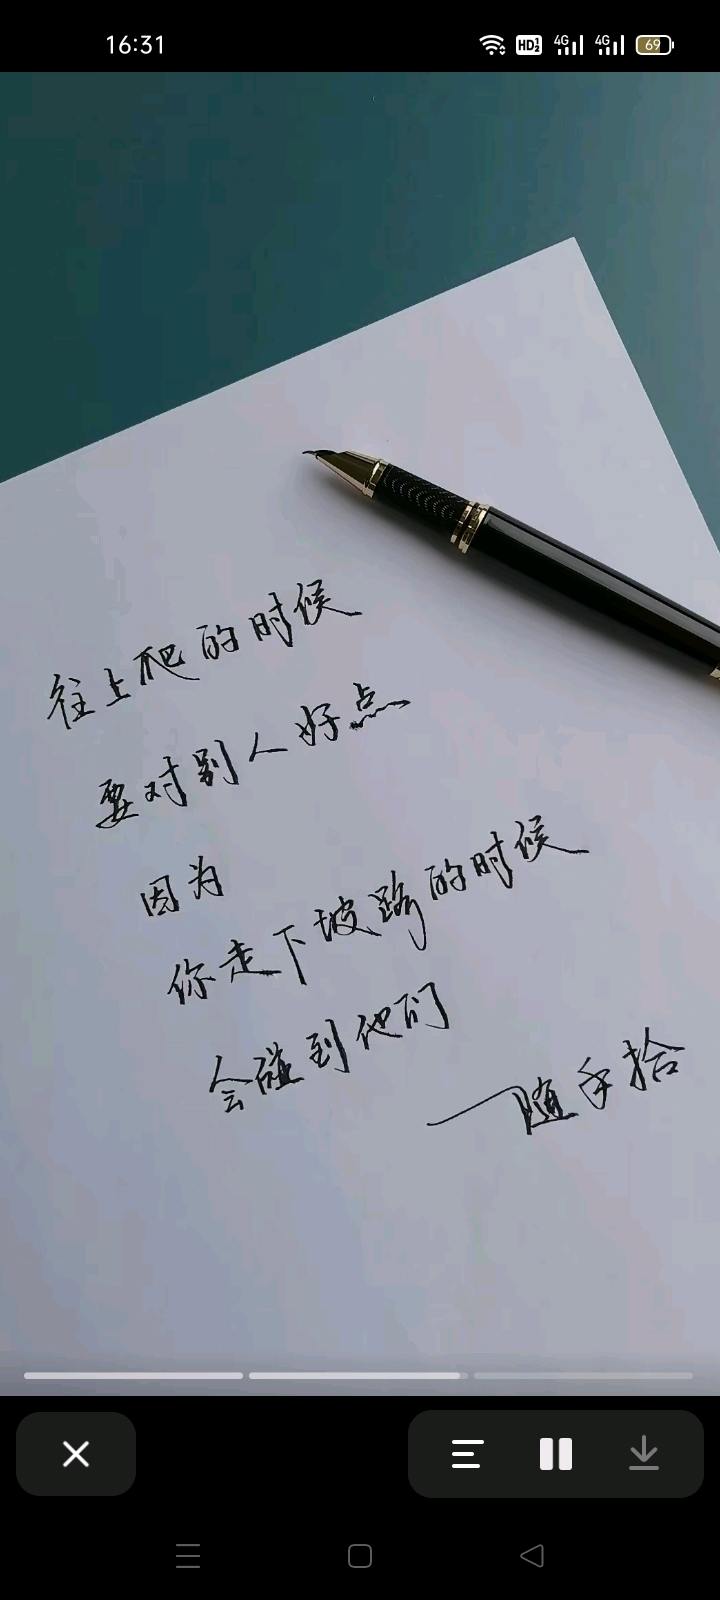 16:31
HD 1 2 4G 4G 69
往上爬的时候
要对别人好点
因为
你走下坡路的时候
会碰到他们
——随手拾